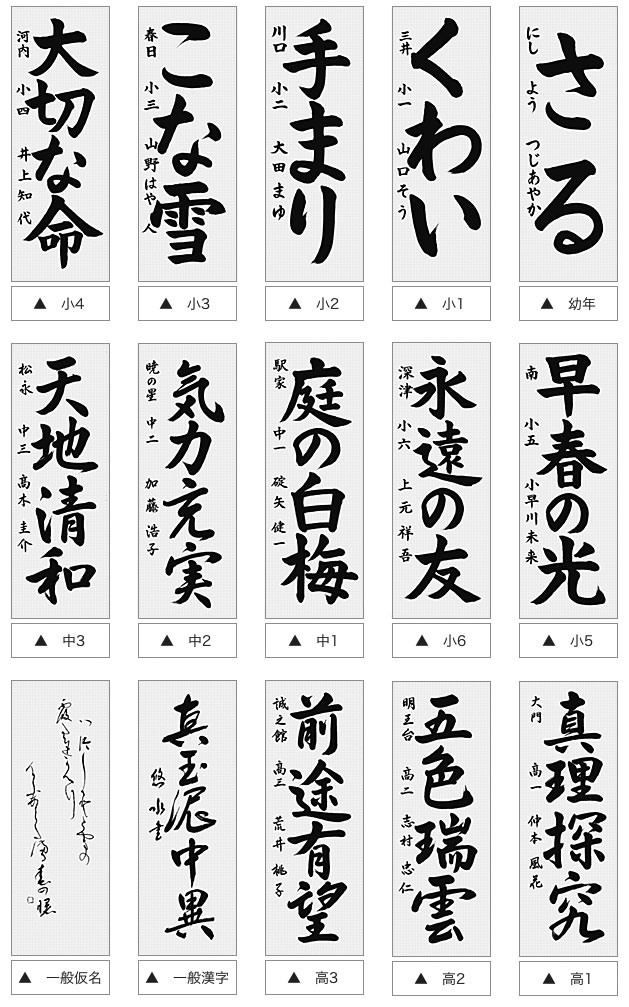 さる
にし よう つじあやか
▲ 幼年
くわい
三井 小一 山口そう
▲ 小1
手まり
川口 小二 大田まゆ
▲ 小2
こな雪
春日 小三 山野はや人
▲ 小3
大切な命
河内 小四 井上知代
▲ 小4
早春の光
南 小五 小早川未来
▲ 小5
永遠の友
深津 小六 上元祥吾
▲ 小6
庭の白梅
駅家 中一 碇矢健一
▲ 中1
気力充実
暁の星 中二 加藤浩子
▲ 中2
天地清和
松永 中三 高木圭介
▲ 中3
真理探究
大門 高一 仲本風花
▲ 高1
五色瑞雲
明王台 高二 志村忠仁
▲ 高2
前途有望
誠之館 高三 荒井桃子
▲ 高3
真玉泥中異
悠水書
▲ 一般漢字
▲ 一般仮名